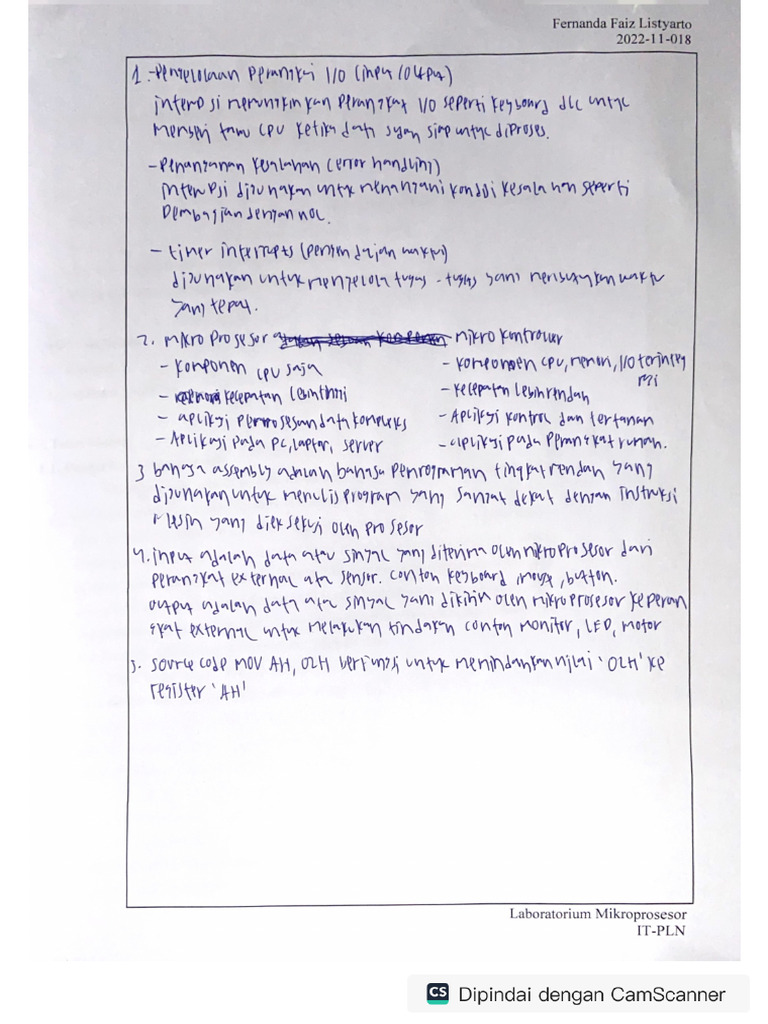 Fernanda Faiz Listyarto
2022-11-018
1. -Pengelolaan Perangkat I/O (input/output)
interupsi memungkinkan perangkat I/O seperti keyboard dll untuk
memberi tahu CPU ketika data siap untuk diproses.
-Penanganan kesalahan (error handling)
interupsi digunakan untuk menangani kondisi kesalahan seperti
Pembagian dengan nol.
- timer interrupts (waktu)
digunakan untuk mengelola tugas-tugas yang membutuhkan waktu
yang tepat.
2. mikroprosesor mikrokontroler
- komponen CPU saja - komponen CPU, memori, I/O terintegrasi
- kecepatan lebih tinggi - kecepatan lebih rendah
- aplikasi pemrosesan data kompleks - Aplikasi kontrol dan tertanam
- Aplikasi pada PC, laptop, server - aplikasi pada perangkat rumah.
3 bahasa assembly adalah bahasa pemrograman tingkat rendah yang
digunakan untuk menulis program yang sangat dekat dengan instruksi
mesin yang dieksekusi oleh prosesor
4. input adalah data atau sinyal yang diterima oleh mikroprosesor dari
perangkat external atau sensor. contoh keyboard, mouse, button.
output adalah data atau sinyal yang dikirim oleh mikroprosesor ke perang
kat external untuk melakukan tindakan contoh monitor, LED, motor
5. source code MOV AH, 02H berfungsi untuk memindahkan nilai '02H' ke
register 'AH'
Laboratorium Mikroprosesor
IT-PLN
CS Dipindai dengan CamScanner